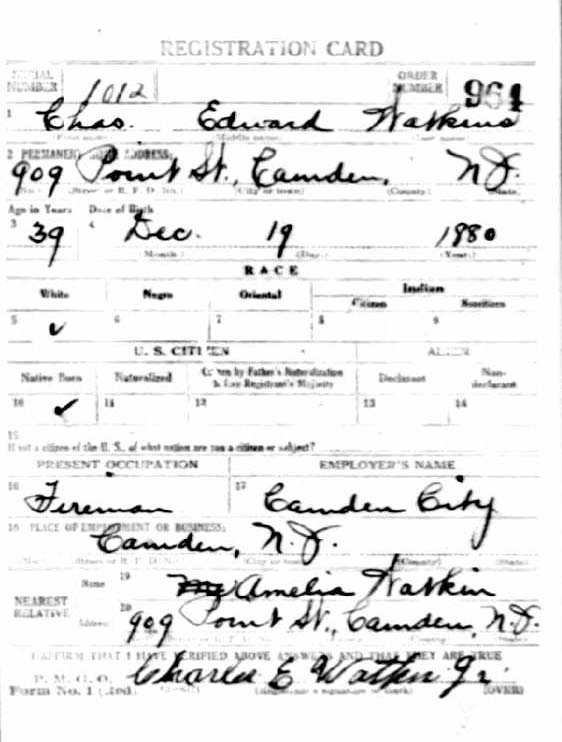 REGISTRATION CARD
SERIAL NUMBER 1012 ORDER NUMBER 964
1 Chas. Edward Watkins
(First name) (Middle name) (Last name)
2 PERMANENT HOME ADDRESS:
909 Point St., Camden, N.J.
(No.) (Street or R. F. D. No.) (City or town) (County) (State)
Age in Years Date of Birth
3 39 4 Dec. 19 1880
(Month) (Day) (Year)
RACE
White Negro Oriental Indian
Citizen Noncitizen
5 ✓ 6 7 8 9
U. S. CITIZEN ALIEN
Native Born Naturalized Citizen by Father's Naturalization Before Registrant's Majority Declarant Non-declarant
10 ✓ 11 12 13 14
15
If not a citizen of the U. S., of what nation are you a citizen or subject?
PRESENT OCCUPATION EMPLOYER'S NAME
16 Fireman 17 Camden City
18 PLACE OF EMPLOYMENT OR BUSINESS:
Camden, N.J.
(No.) (Street or R. F. D. No.) (City or town) (County) (State)
NEAREST RELATIVE
Name 19 Amelia Watkin
Address 20 909 Point St., Camden, N.J.
I AFFIRM THAT I HAVE VERIFIED ABOVE ANSWERS AND THAT THEY ARE TRUE
P. M. G. O.
Form No. 1 (Red) Charles E Watkin Jr.
(Registrant's signature or mark) (OVER)